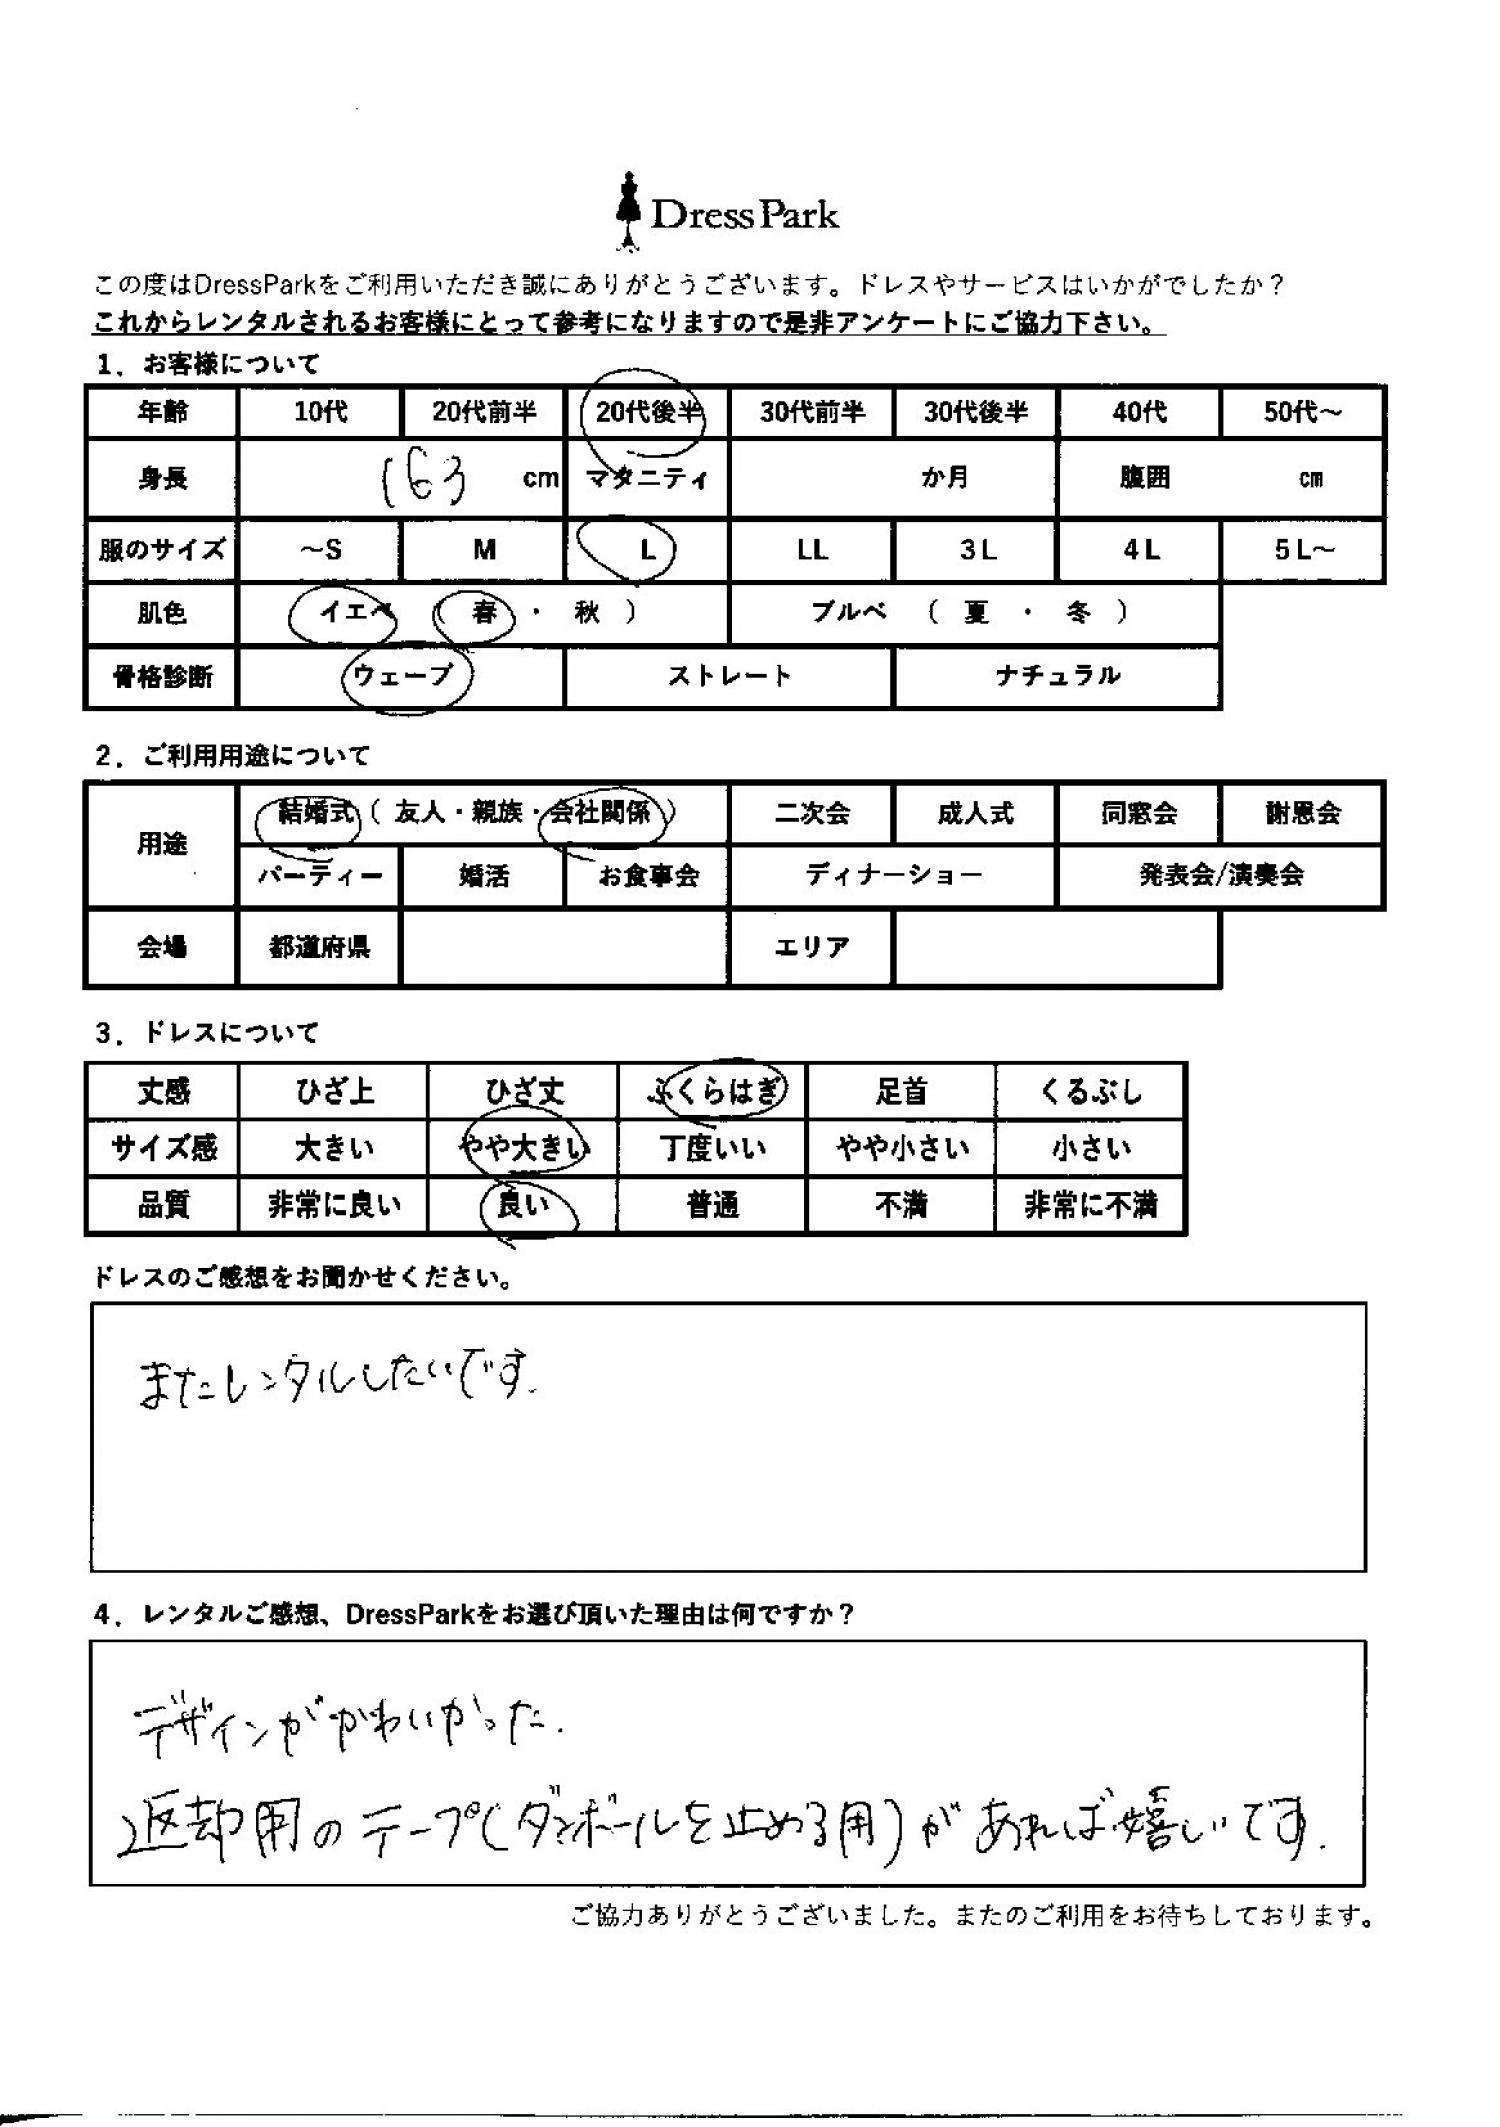 DressPark
この度はDressParkをご利用いただき誠にありがとうございます。ドレスやサービスはいかがでしたか？
これからレンタルされるお客様にとって参考になりますので是非アンケートにご協力下さい。
1．お客様について
年齢 10代 20代前半 20代後半 30代前半 30代後半 40代 50代～
身長 163 cm マタニティ か月 腹囲 cm
服のサイズ ～S M L LL 3L 4L 5L～
肌色 イエベ （ 春 ・ 秋 ） ブルベ （ 夏 ・ 冬 ）
骨格診断 ウェーブ ストレート ナチュラル
2．ご利用用途について
用途 結婚式（ 友人・親族・会社関係 ） 二次会 成人式 同窓会 謝恩会
パーティー 婚活 お食事会 ディナーショー 発表会/演奏会
会場 都道府県 エリア
3．ドレスについて
丈感 ひざ上 ひざ丈 ふくらはぎ 足首 くるぶし
サイズ感 大きい やや大きい 丁度いい やや小さい 小さい
品質 非常に良い 良い 普通 不満 非常に不満
ドレスのご感想をお聞かせください。
またレンタルしたいです.
4．レンタルご感想、DressParkをお選び頂いた理由は何ですか？
デザインがかわいかった.
返却用のテープ(ダンボールを止める用)があれば嬉しいです.
ご協力ありがとうございました。またのご利用をお待ちしております。